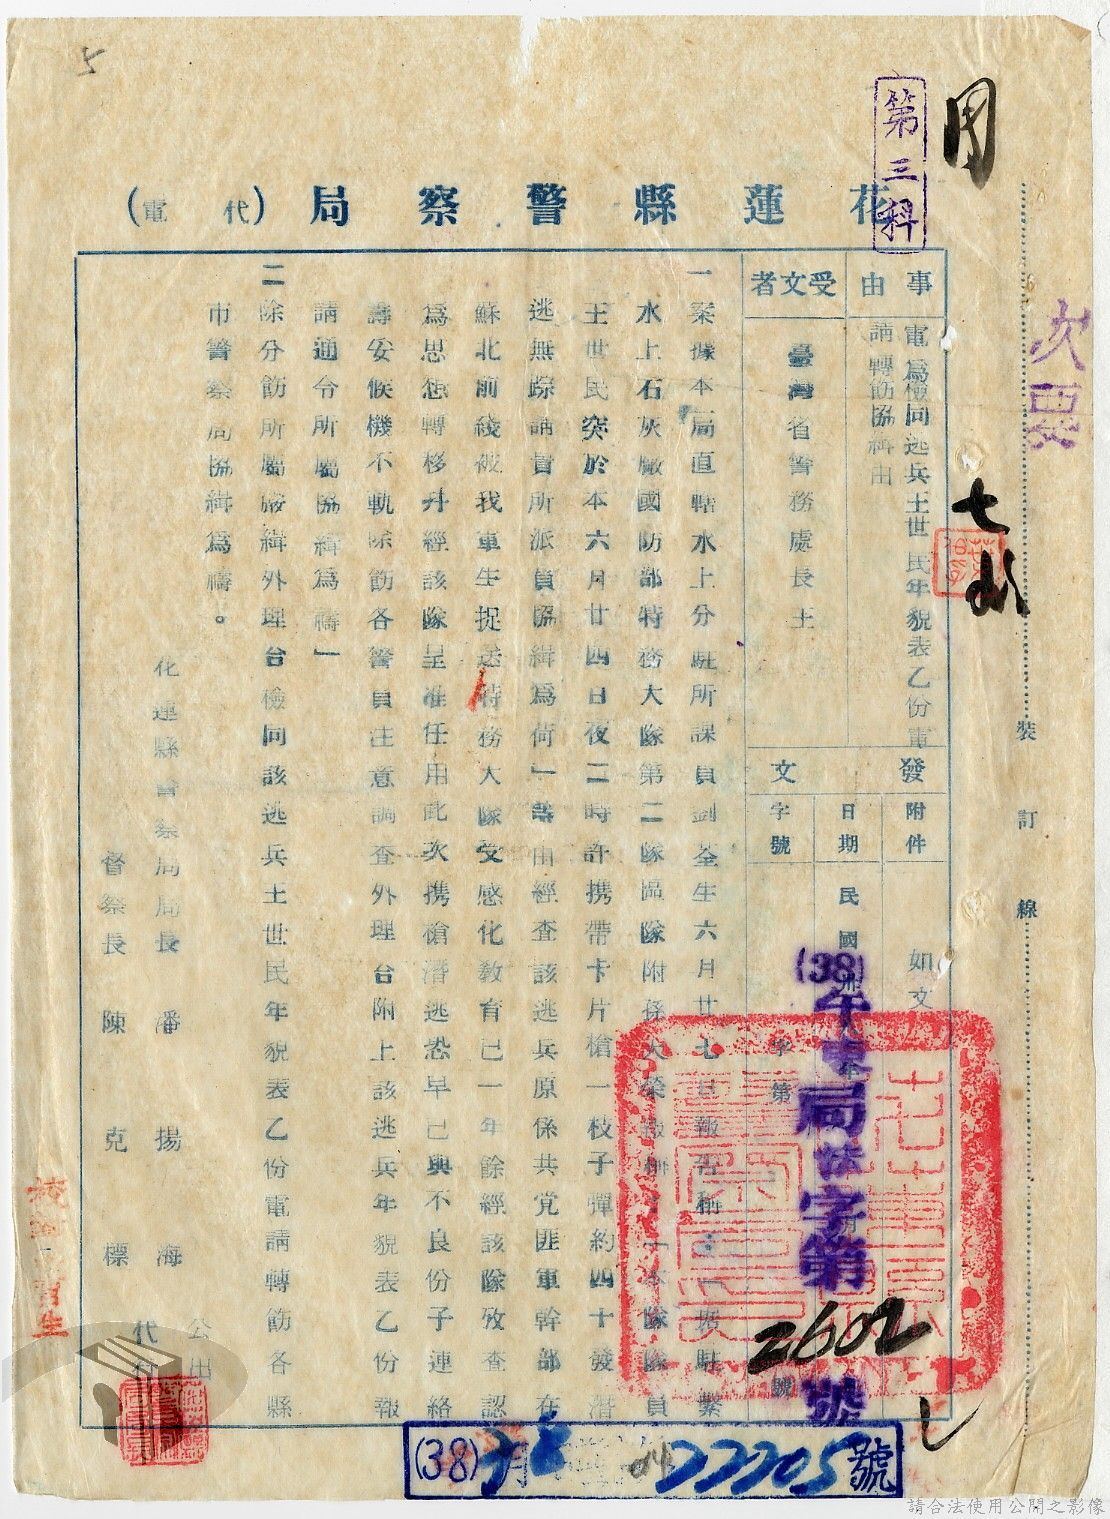 5
周
第三科
花蓮縣警察局(代電)
次要
裝訂線
事由
電為檢同逃兵王世民年貌表乙份電
請轉飭協緝由
受文者
臺灣省警務處長王
發文
附件
如文
日期
民國
字號
字第
號
(38)
局法字第
2602
號
一案據本局直轄水上分駐所課員劉荃生六月廿七日報告稱：「據駐繫
水上石灰廠國防部特務大隊第二隊區隊附孫大榮報稱：「本隊隊員
王世民突於本六月廿四日夜二時許携帶卡片槍一枝子彈約四十發潛
逃無踪請貴所派員協緝為荷」等由經查該逃兵原係共党匪軍幹部在
蘇北前綫被我軍生捉送特務大隊受感化教育已一年餘經該隊攷查認
為思想轉移丹經該隊呈准任用此次携槍潛逃恐早已與不良份子連絡
譸安候機不軌除飭各警員注意調查外理合附上該逃兵年貌表乙份報
請通令所屬協緝為禱」
二除分飭所屬嚴緝外理合檢同該逃兵王世民年貌表乙份電請轉飭各縣
市警察局協緝為禱。
花蓮縣警察局局長潘揚海公出
督察長陳克標代行
(38)
月
22205
號
請合法使用公開之影像